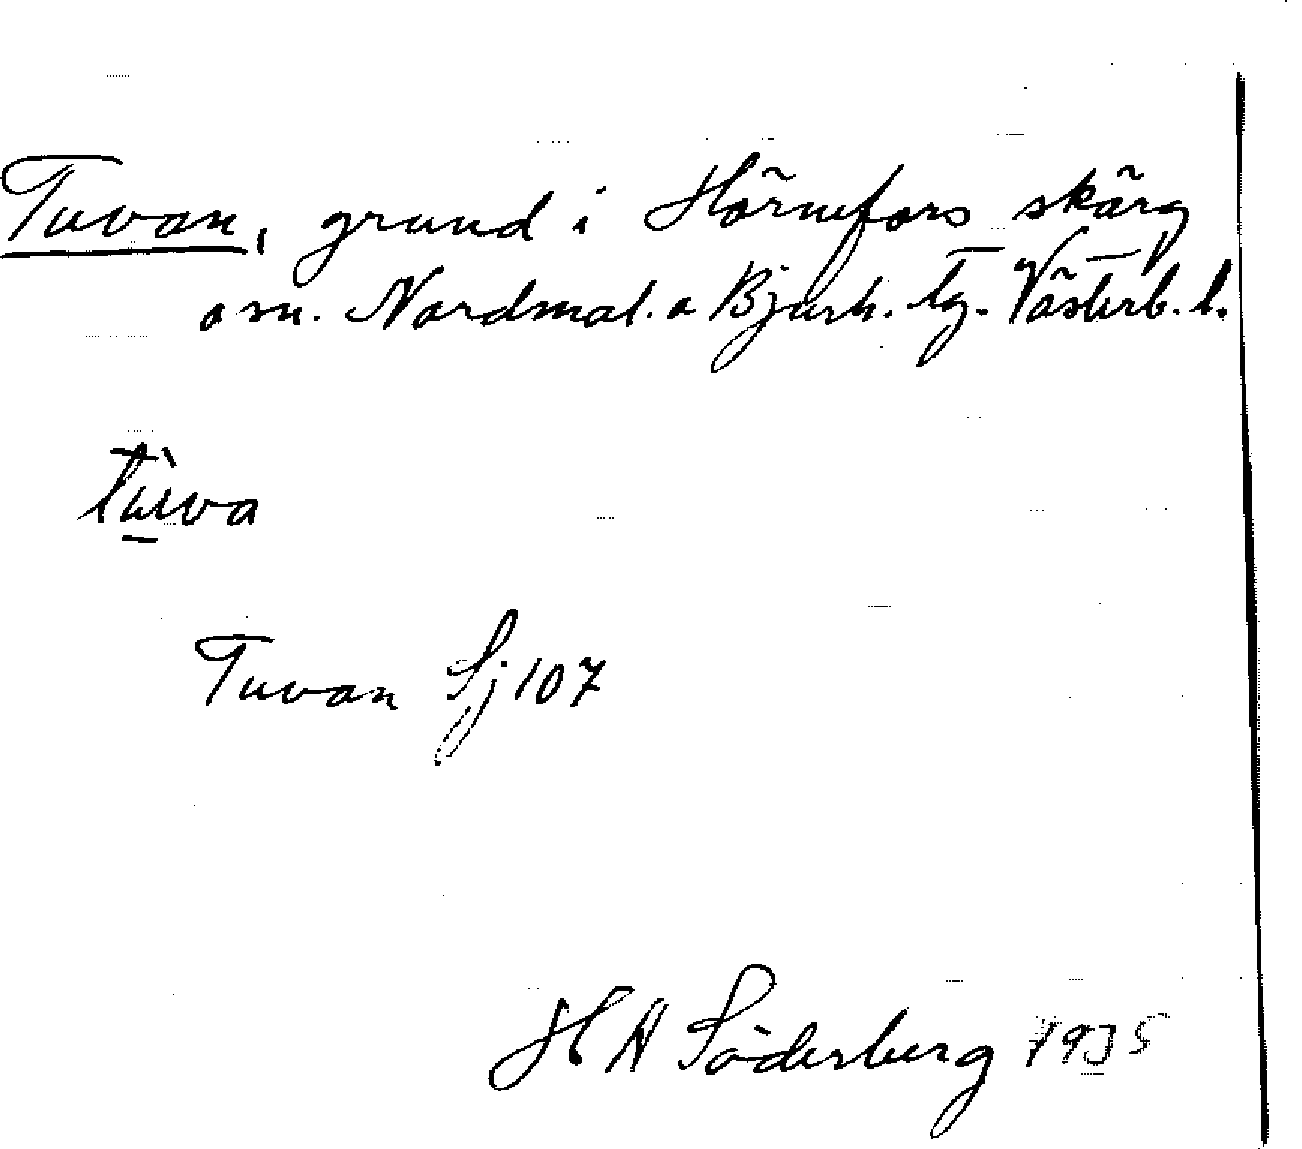 Tuvan, grund i Hörnefors skärg
o sn. Nordmal. o Bjurh. tg. Västerb. l.
tùwa
Tuvan Sj 107
H A Söderberg 1935